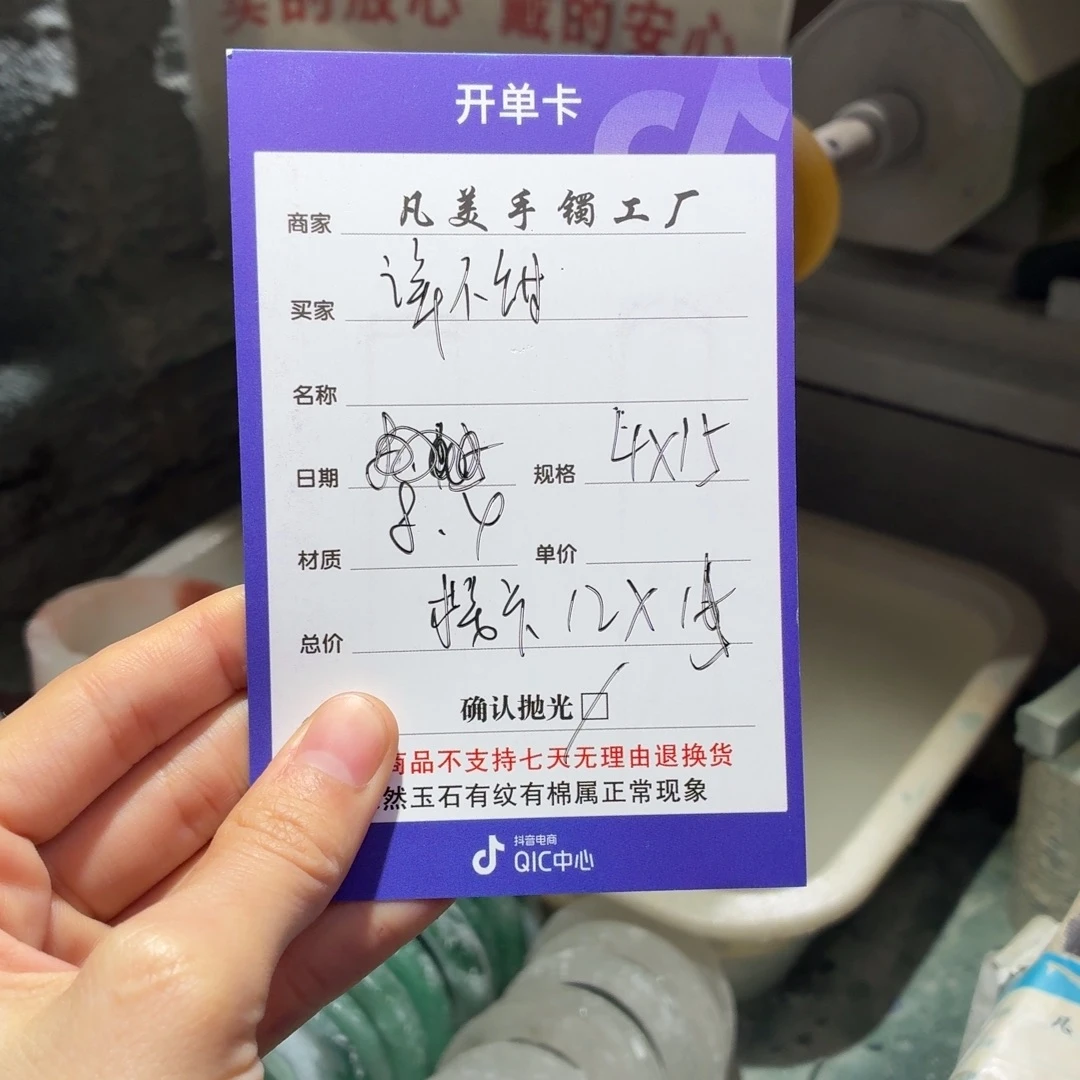 卖的放心 戴的安心
开单卡
商家 凡美手镯工厂
买家 许不甜
名称
日期 规格 54X15
8.4
材质 单价
总价 标卡 12X
确认抛光
商品不支持七天无理由退换货
然玉石有纹有棉属正常现象
抖音电商
QIC中心
凡